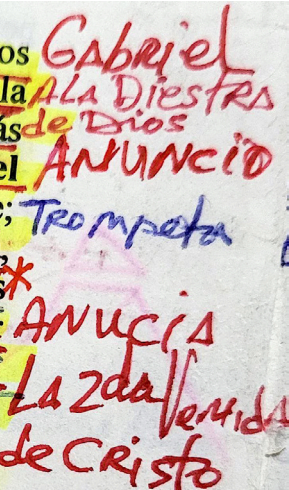 os Gabriel
la A LA DiestRA
ás de Dios
el ANUNCiO
; TROMpeta
*
ANUCiA
LA 2da Venida
de CRisto